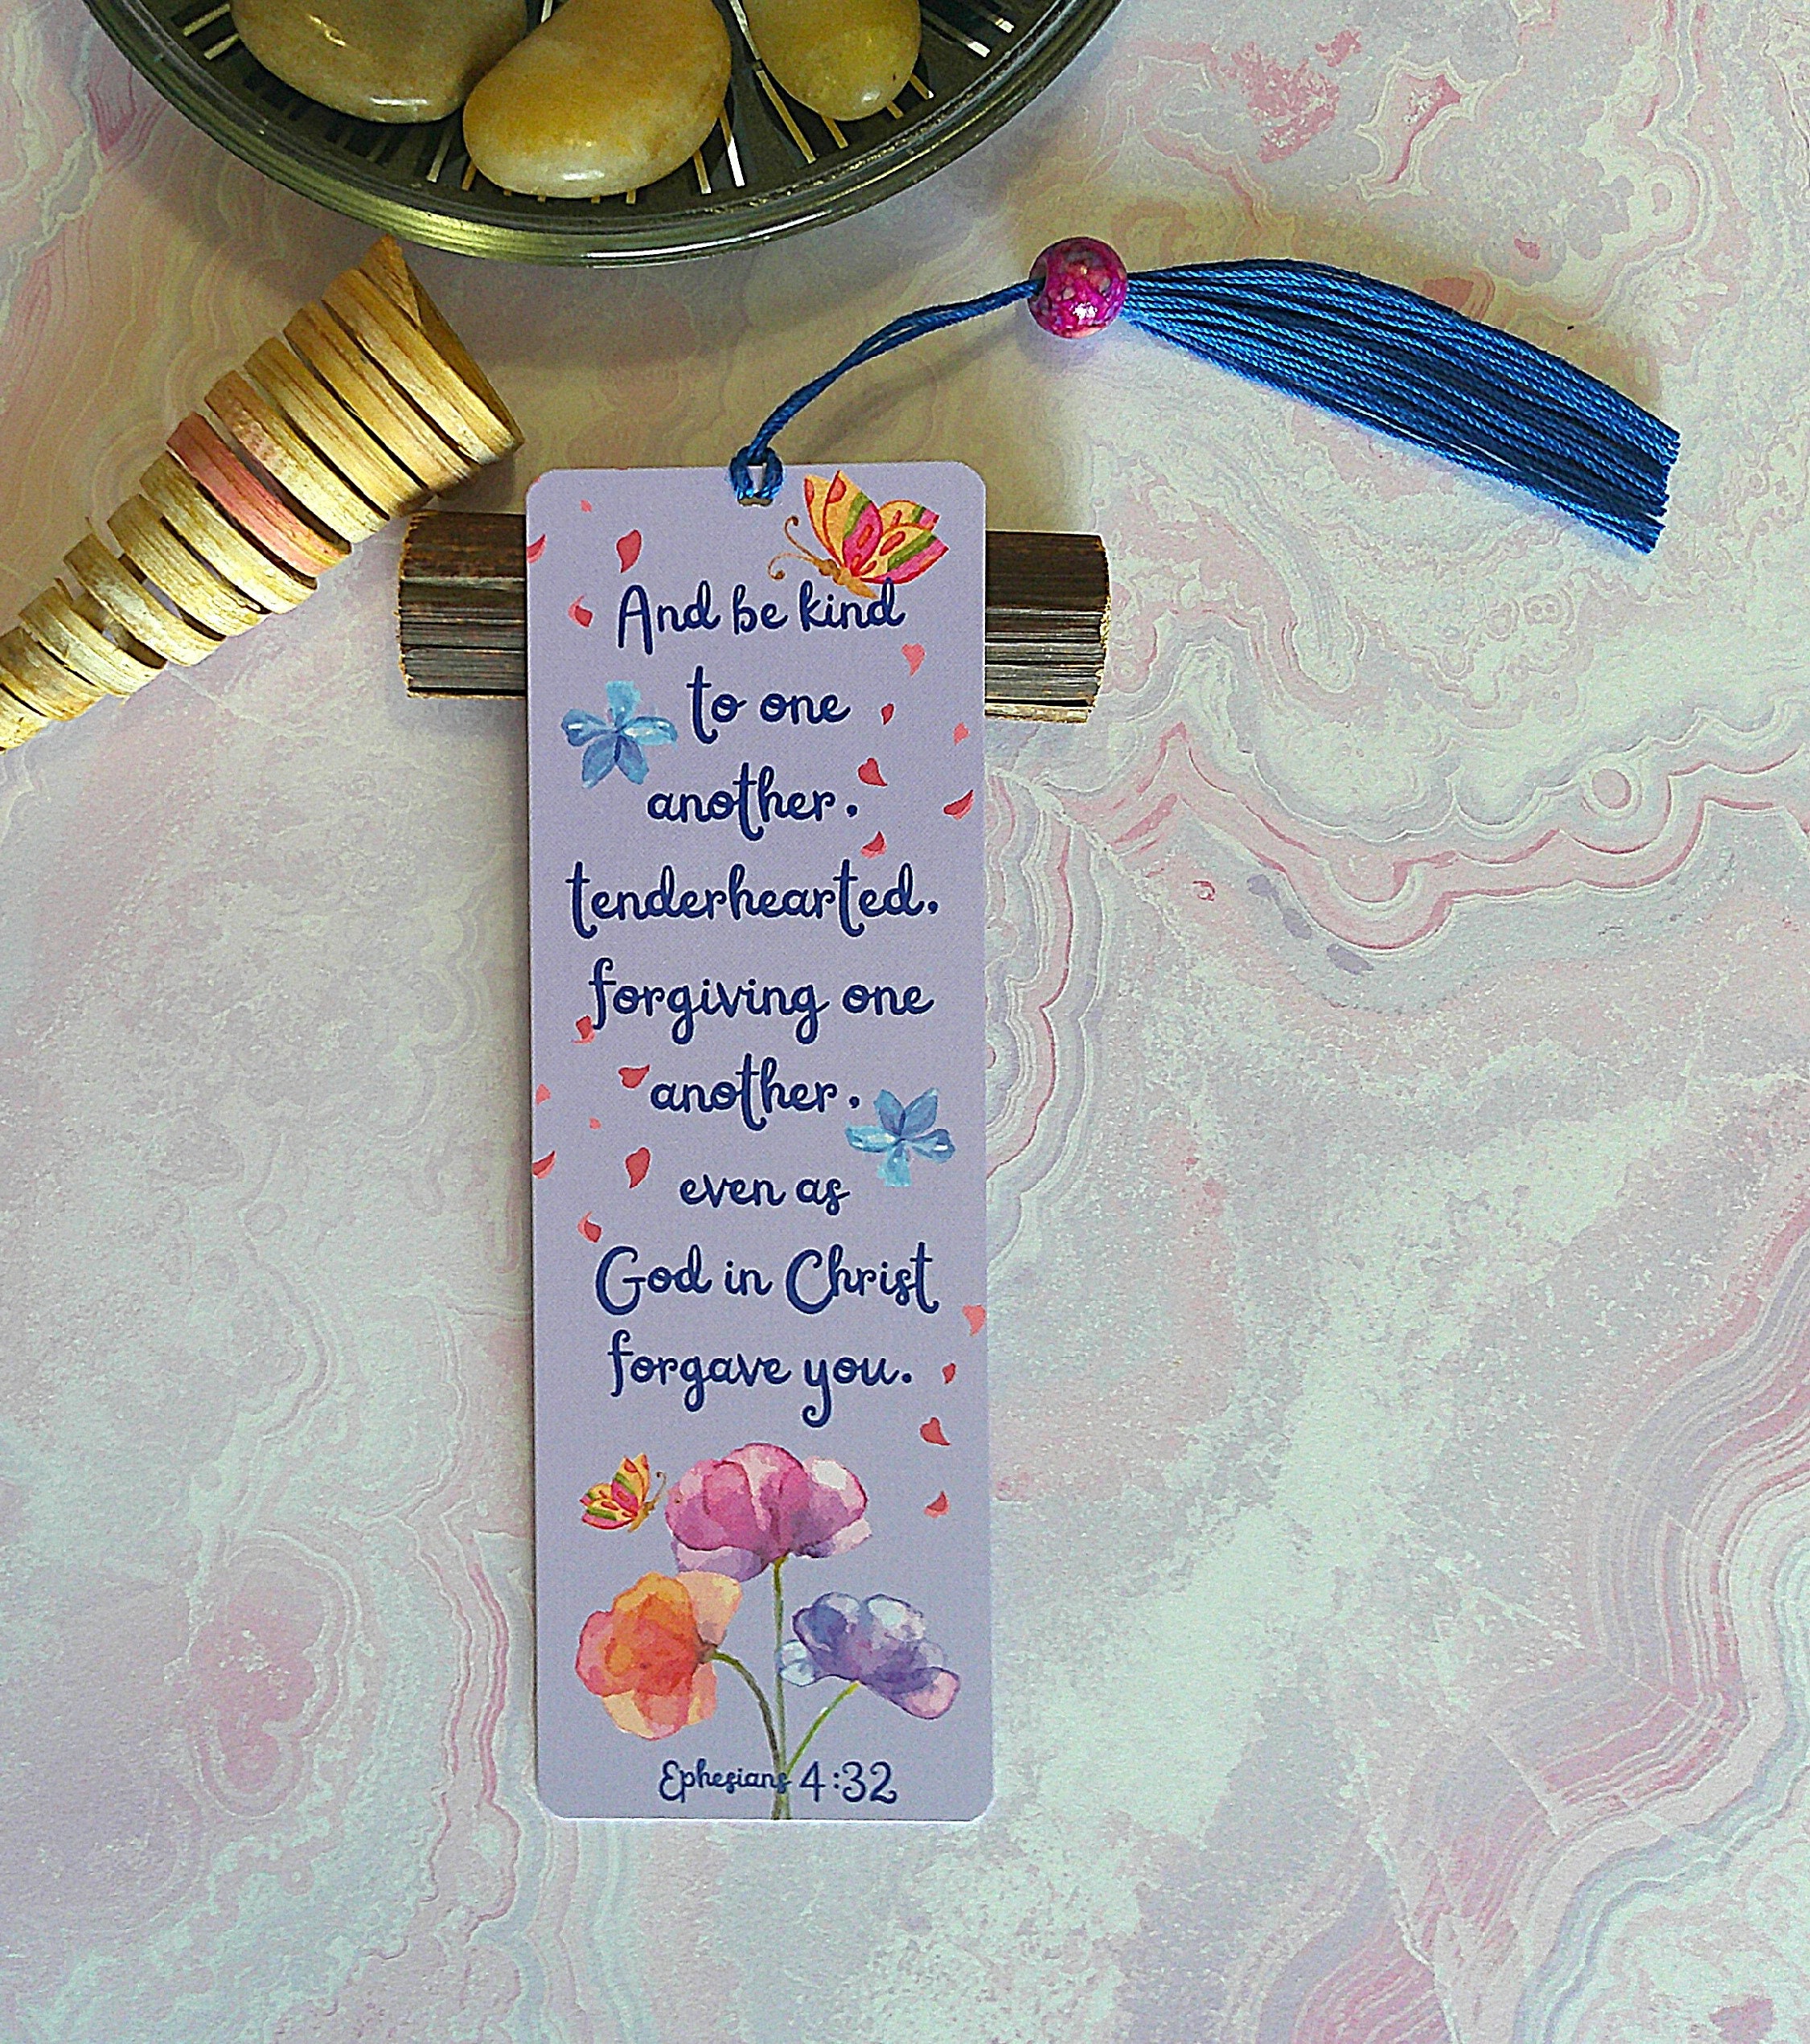 And be kind
to one
another,
tenderhearted,
forgiving one
another,
even as
God in Christ
forgave you.
Ephesians 4:32